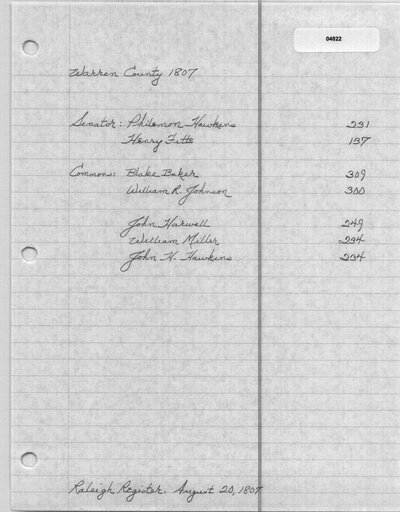 04822
Warren County 1807
Senator: Philemon Hawkins 231
Henry Fitts 137
Commons: Blake Baker 309
William R. Johnson 300
John Harwell 249
William Miller 234
John H. Hawkins 234
Raleigh Register. August 20, 1807